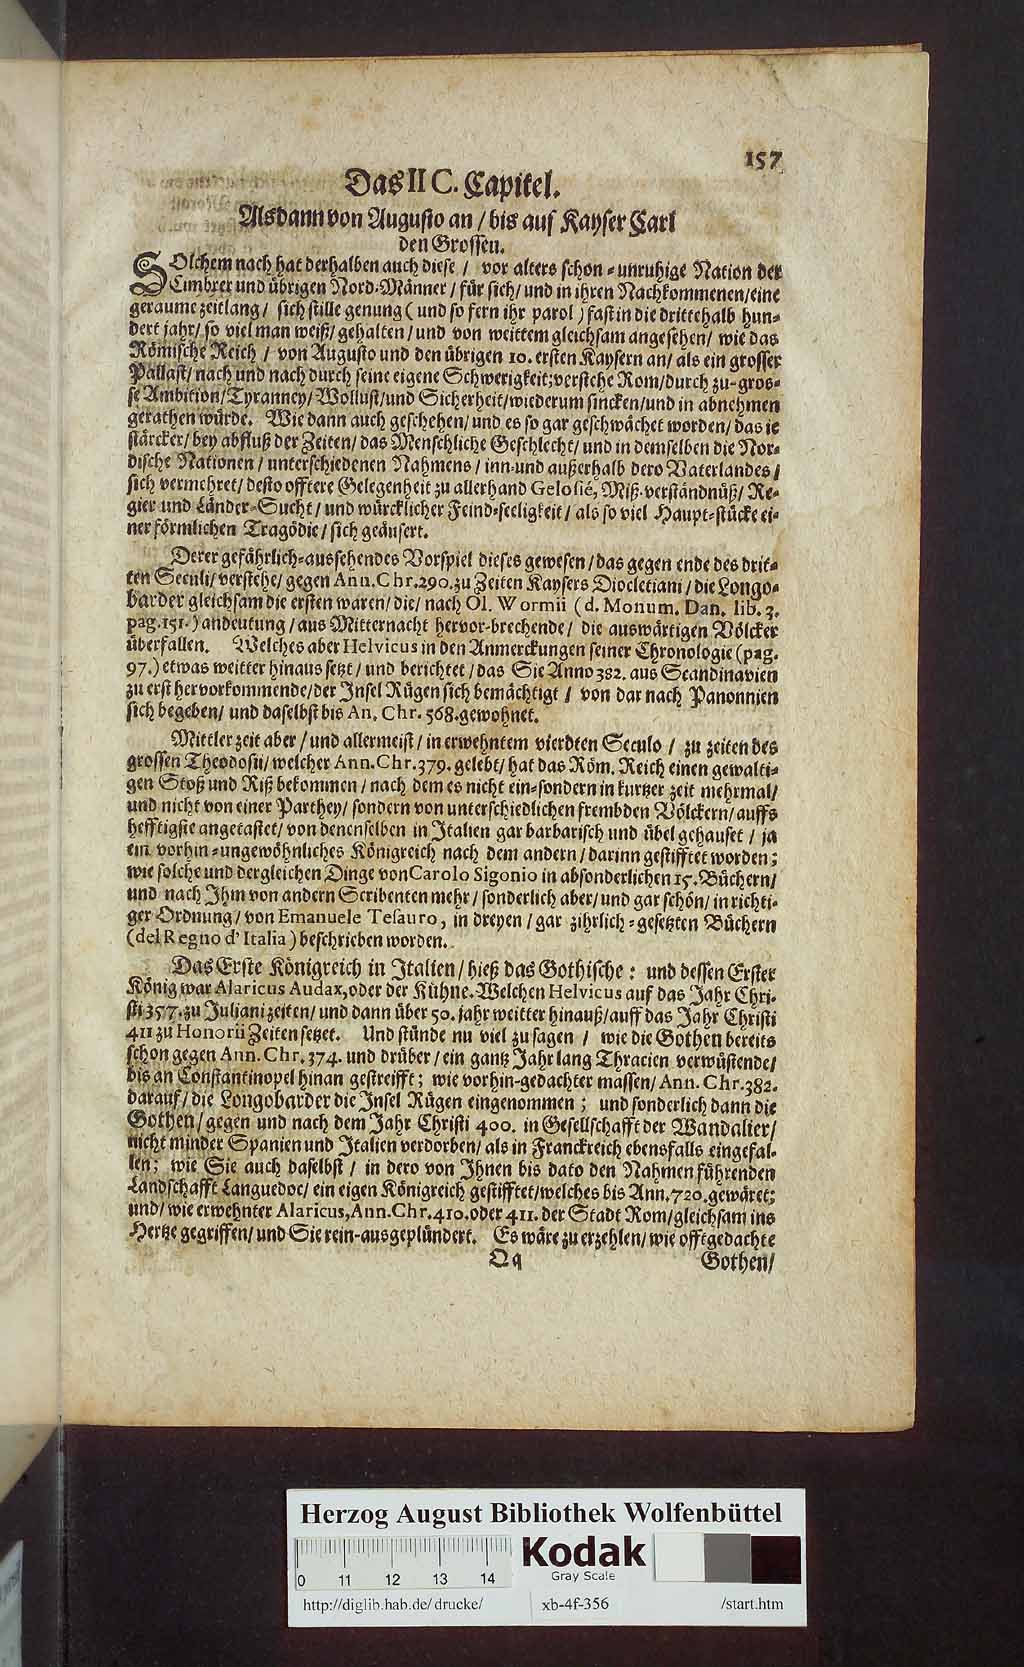 157
Das II C. Capitel.
Alsdann von Augusto an / bis auf Kayser Carl
den Grossen.
SOlchem nach hat derhalben auch diese / vor alters schon-unruhige Nation der
Cimbrer und übrigen Nord-Männer / für sich / und in ihren Nachkommenen / eine
geraume zeitlang / sich stille genung ( und so fern ihr parol ) fast in die drittehalb hun-
dert jahr / so viel man weiß / gehalten / und von weittem gleichsam angesehen / wie das
Römische Reich / von Augusto und den übrigen 10. ersten Kaysern an / als ein grosser
Pallast / nach und nach durch seine eigene Schwerigkeit; verstehe Rom / durch zu-gros-
se Ambition / Tyranney / Wollust / und Sicherheit / wiederum sincken / und in abnehmen
gerathen würde. Wie dann auch geschehen / und es so gar geschwächet worden / das ie
stärcker / bey abfluß der Zeiten / das Menschliche Geschlecht / und in demselben die Nor-
dische Nationen / unterschiedenen Nahmens / inn-und außerhalb dero Vaterlandes /
sich vermehret / desto offtere Gelegenheit zu allerhand Gelosié, Miß-verständnüß / Re-
gier-und Länder-Sucht / und würcklicher Feind-seeligkeit / als so viel Haupt-stücke ei-
ner förmlichen Tragödie / sich geäusert.
Derer gefährlich-aussehendes Vorspiel dieses gewesen / das gegen ende des drit-
ten Seculi / verstehe / gegen Ann. Chr. 290. zu Zeiten Kaysers Diocletiani / die Longo-
barder gleichsam die ersten waren / die / nach Ol. Wormii (d. Monum. Dan. lib. 3.
pag. 151.) andeutung / aus Mitternacht hervor-brechende / die auswärtigen Völcker
überfallen. Welches aber Helvicus in den Anmerckungen seiner Chronologie (pag.
97.) etwas weitter hinaus setzt / und berichtet / das Sie Anno 382. aus Scandinavien
zu erst hervorkommende / der Insel Rügen sich bemächtigt / von dar nach Panonnien
sich begeben / und daselbst bis An. Chr. 568. gewohnet.
Mittler zeit aber / und allermeist / in erwehntem vierdten Seculo / zu zeiten des
grossen Theodosii / welcher Ann. Chr. 379. gelebt / hat das Röm. Reich einen gewalti-
gen Stoß und Riß bekommen / nach dem es nicht ein-sondern in kurtzer zeit mehrmal /
und nicht von einer Parthey / sondern von unterschiedlichen frembden Völckern / auffs
hefftigste angetastet / von denenselben in Italien gar barbarisch und übel gehauset / ja
ein vorhin-ungewöhnliches Königreich nach dem andern / darinn gestifftet worden;
wie solche und dergleichen Dinge von Carolo Sigonio in absonderlichen 15. Büchern /
und nach Ihm von andern Scribenten mehr / sonderlich aber / und gar schön / in richti-
ger Ordnung / von Emanuele Tesauro, in dreyen / gar zihrlich-gesetzten Büchern
(del Regno d' Italia) beschrieben worden.
Das Erste Königreich in Italien / hieß das Gothische: und dessen Erster
König war Alaricus Audax, oder der Kühne. Welchen Helvicus auf das Jahr Chri-
sti 357. zu Juliani zeiten / und dann über 50. jahr weitter hinauß / auff das Jahr Christi
411 zu Honorii Zeiten setzet. Und stünde nu viel zu sagen / wie die Gothen bereits
schon gegen Ann. Chr. 374. und drüber / ein gantz Jahr lang Thracien verwüstende /
bis an Constantinopel hinan gestreifft; wie vorhin-gedachter massen / Ann. Chr. 382.
darauf / die Longobarder die Insel Rügen eingenommen; und sonderlich dann die
Gothen / gegen und nach dem Jahr Christi 400. in Gesellschafft der Wandalier /
nicht minder Spanien und Italien verdorben / als in Franckreich ebensfalls eingefal-
len; wie Sie auch daselbst / in dero von Ihnen bis dato den Nahmen führenden
Landschafft Languedoc / ein eigen Königreich gestifftet / welches bis Ann. 720. gewäret;
und / wie erwehnter Alaricus, Ann. Chr. 410. oder 411. der Stadt Rom / gleichsam ins
Hertze gegriffen / und Sie rein-ausgeplündert. Es wäre zu erzehlen / wie offtgedachte
Qq Gothen /
Herzog August Bibliothek Wolfenbüttel
0 11 12 13 14
Kodak
Gray Scale
http://diglib.hab.de/drucke/ xb-4f-356 /start.htm